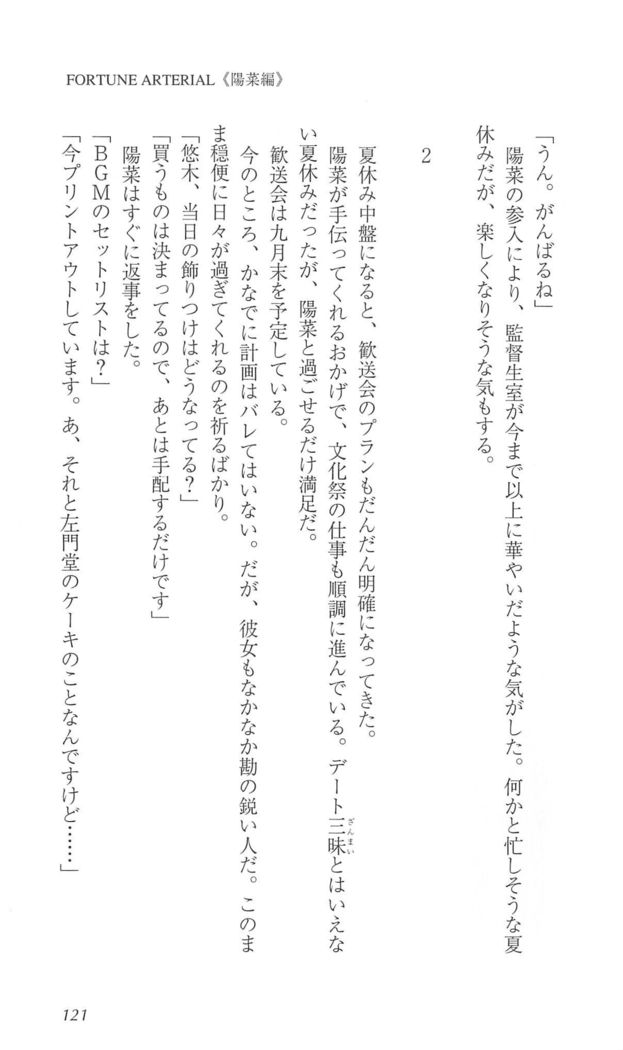 FORTUNE ARTERIAL《陽菜編》
「うん。がんばるね」
　陽菜の参入により、監督生室が今まで以上に華やいだような気がした。何かと忙しそうな夏
休みだが、楽しくなりそうな気もする。
2
　夏休み中盤になると、歓送会のプランもだんだん明確になってきた。
　陽菜が手伝ってくれるおかげで、文化祭の仕事も順調に進んでいる。デート三昧とはいえな
ざんまい
い夏休みだったが、陽菜と過ごせるだけ満足だ。
　歓送会は九月末を予定している。
　今のところ、かなでに計画はバレてはいない。だが、彼女もなかなか勘の鋭い人だ。このま
ま穏便に日々が過ぎてくれるのを祈るばかり。
「悠木、当日の飾りつけはどうなってる？」
「買うものは決まってるので、あとは手配するだけです」
　陽菜はすぐに返事をした。
「ＢＧＭのセットリストは？」
「今プリントアウトしています。あ、それと左門堂のケーキのことなんですけど……」
121